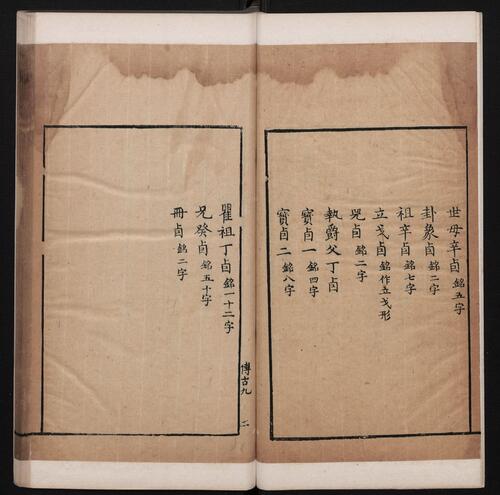 世母辛卣 銘五字
卦象卣 銘二字
祖辛卣 銘七字
立戈卣 銘作立戈形
兕卣 銘二字
執爵父丁卣
寶卣一 銘四字
寶卣二 銘八字
博古九 二
瞿祖丁卣 銘一十二字
兄癸卣 銘五十字
冊卣 銘二字